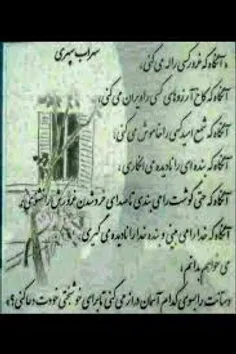 سهراب سپهری
آنگاه که غرور کسی را له می کنی،
آنگاه که کاخ آرزوهای کسی را ویران می کنی،
آنگاه که شمع امید کسی را خاموش می کنی،
آنگاه که بنده ای را نادیده می انگاری،
آنگاه که حتی گوشت را می بندی تا صدای خرد شدن غرورش را نشنوی،
آنگاه که خدا را می بینی و بنده خدا را نادیده می گیری،
می خواهم بدانم،
دستانت را بسوی کدام آسمان دراز می کنی تا برای خوشبختی خودت دعا کنی؟